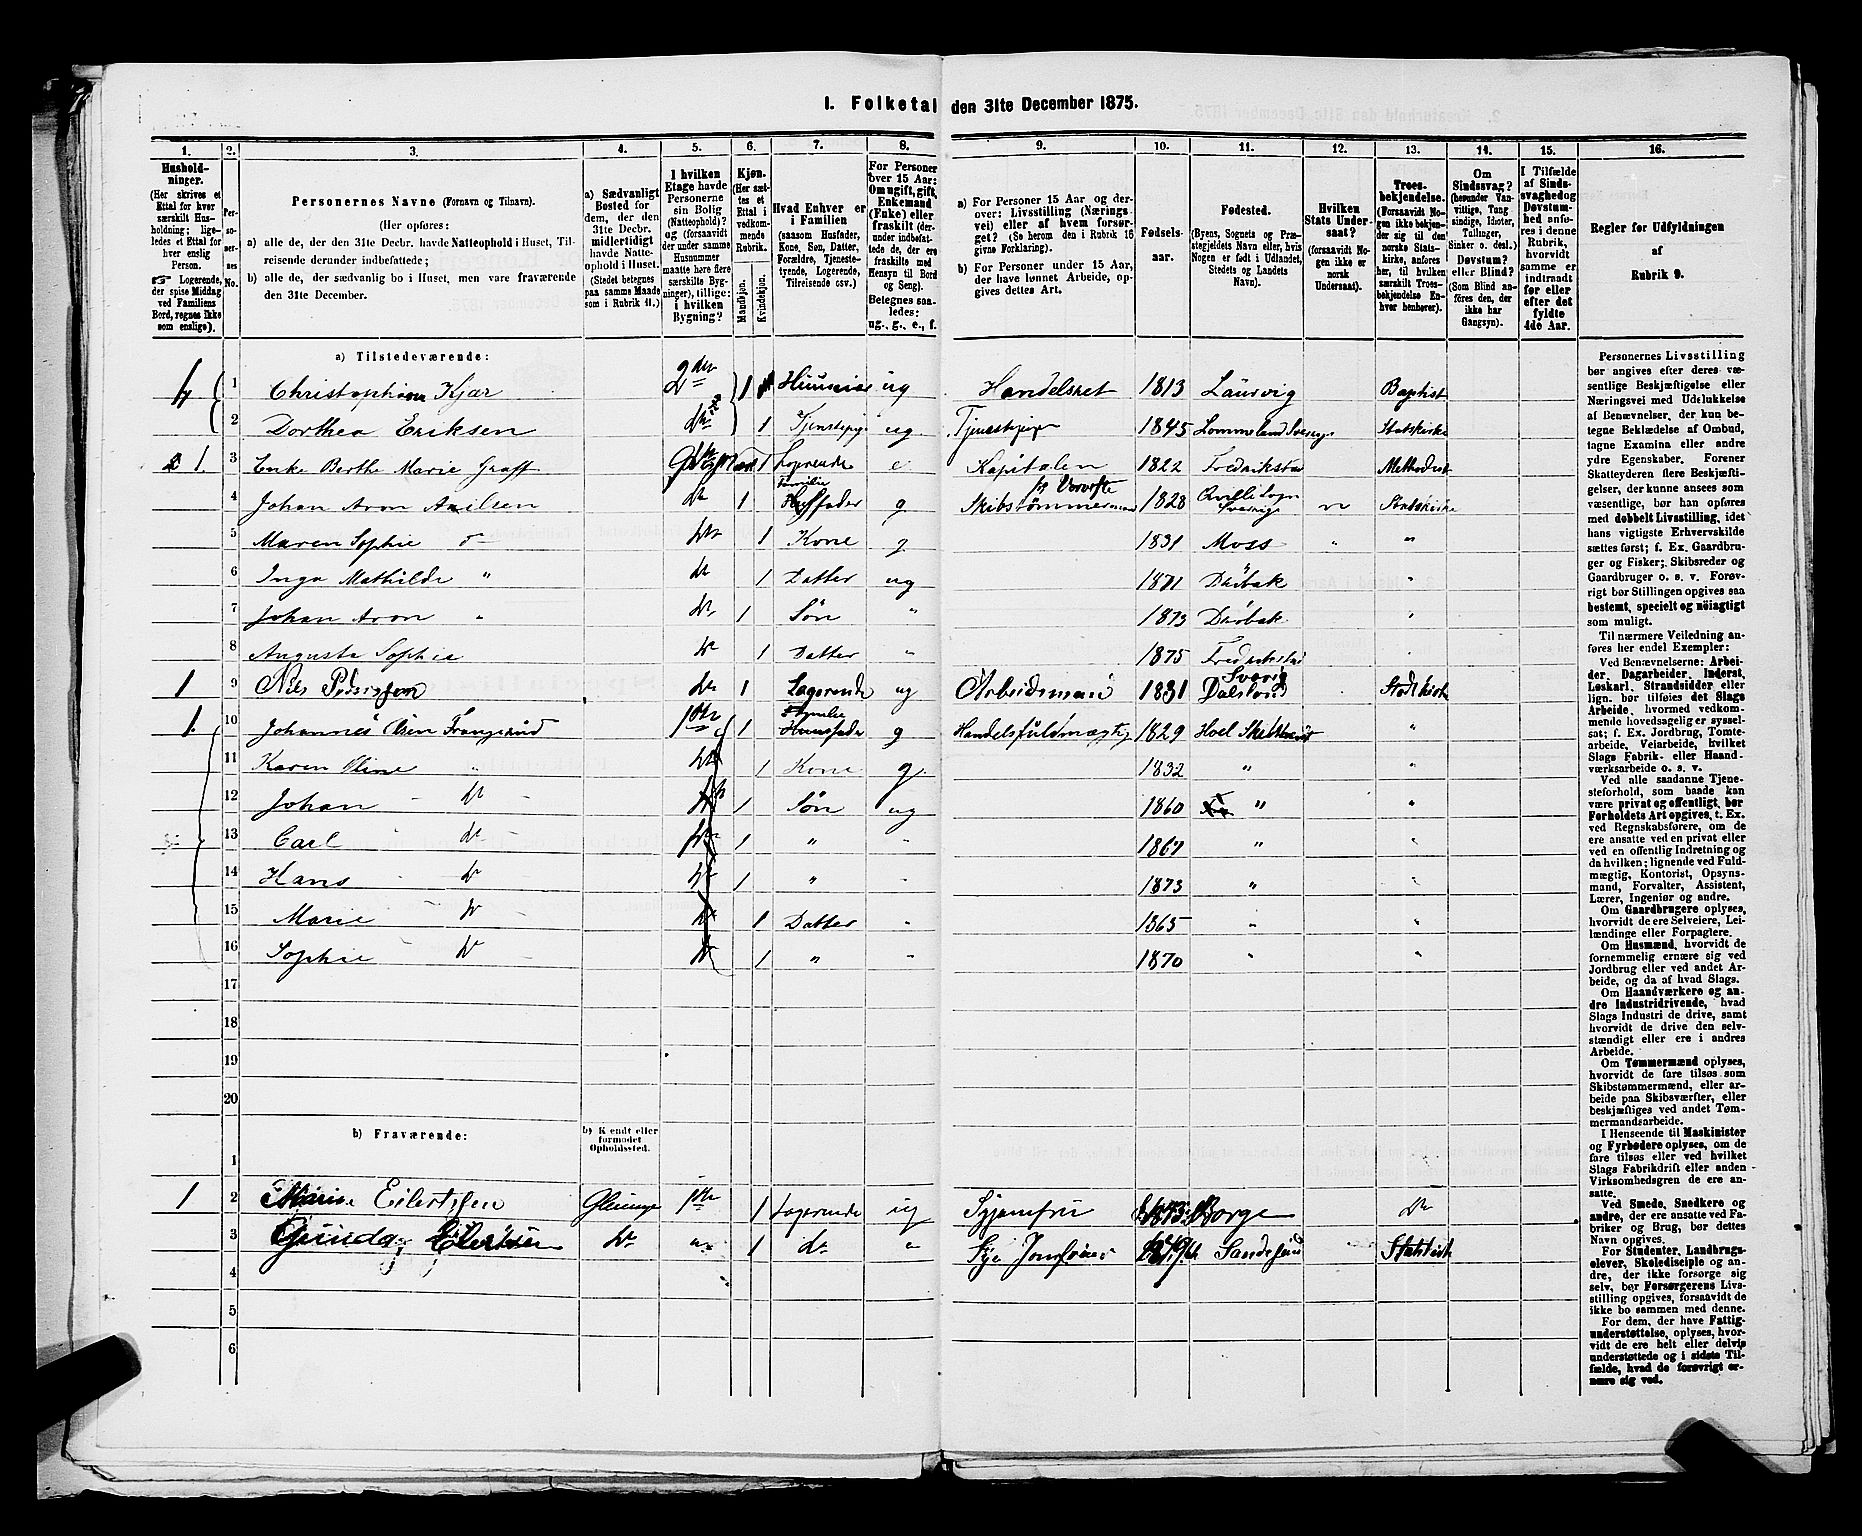 I. Folketal den 31te December 1875.
1. 2. 3. 4. 5. 6. 7. 8. 9. 10. 11. 12. 13. 14. 15. 16.
Husholdninger.
(Her skrives et
Ettal for hver
særskilt Husholdning;
ligeledes et Ettal for
hver enslig
Person.
Logerende,
der spise Middag
ved Familiens
Bord, regnes ikke
som enslige).
Personernes No.
Personernes Navne (Fornavn og Tilnavn).
(Her opføres:
a) alle de, der den 31te Decbr. havde Natteophold i Huset, Tilreisende
derunder indbefattede;
b) alle de, der sædvanlig bo i Huset, men vare fraværende
den 31te December.
a) Sædvanligt
Bosted for
dem, der den
31te Decbr.
midlertidigt
havde Natteophold
i Huset.
(Stedet betegnes
paa samme Maade
som i Rubrik 11.)
I hvilken
Etage havde
Personerne
sin Bolig
(Natteophold)?
og (forsaavidt
der under samme
Husnummer
maatte høre flere
særskilte Bygninger),
tillige:
i hvilken
Bygning?
Kjøn.
(Her sættes
et
Ettal i
vedkommende
Rubrik.
Mandkjøn.
Kvindekjøn.
Hvad Enhver er
i Familien
(saasom Husfader,
Kone, Søn, Datter,
Forældre, Tjenestetyende,
Logerende,
Tilreisende osv.)
For Personer
over 15 Aar:
Om ugift, gift,
Enkemand
(Enke) eller
fraskilt (derunder
indbefattede
de, der ere
fraskilte med
Hensyn til Bord
og Seng).
Betegnes saaledes:
ug., g., e., f.
a) For Personer 15 Aar og derover:
Livsstilling (Næringsvei)
eller af hvem forsørget?
(Se herom den i Rubrik 16
givne Forklaring).
b) For Personer under 15 Aar,
der have lønnet Arbeide, opgives
dettes Art.
Fødselsaar.
Fødested.
(Byens, Sognets og Præstegjeldets
Navn eller, hvis
Nogen er født i Udlandet,
Stedets og Landets
Navn).
Hvilken
Stats Undersaat?
(forsaavidt Nogen
ikke er
norsk
Undersaat).
Troesbekjendelse.
(Forsaavidt Nogen
ikke bekjender
sig til den
norske Statskirke,
anføres
her, til hvilken
særskilt Troesbekjendelse
Enhver
henhører).
Om
Sindssvag?
(herunder Vanvittige,
Tungsindige,
Idioter,
Tullinger,
Sinker o. desl.)
Døvstum?
eller Blind?
(Som Blind anføres
den, der
ikke har
Gangsyn).
I Tilfælde
af Sindssvaghed
og
Døvstumhed
anføres
i denne
Rubrik,
hvorvidt
samme er
indtraadt
før eller
efter det
fyldte
4de Aar.
Regler for Udfyldningen
af
Rubrik 9.
a) Tilstedeværende:
1 Christophine Kjær 1 Handelsret 1813 Laurvig Baptist
2 Dorthea Eriksen 1 Tjenestepige ug 1845 Statskirke
1 3 Enke Berthe Marie Graff 1 Logerende e Kapitalen 1822 Fredrikstad Methodist
4 Johan Aron Axelsen 1 Familie Husfader g Skibstømmermand 1828 Statskirke
5 Maren Sophie 1 Kone g 1831 Moss "
6 Inga Mathilde " 1 Datter ug 1871 Drøbak "
7 Johan Aron " 1 Søn " 1873 Drøbak "
8 Augusta Sophie 1 Datter " 1875 Fredrikstad "
1 9 Nils Pedersen 1 Logerende ug Arbeidsmand 1831 Dalsland Sverig Statskirke
1. 10 Johannes Olsen 1 Familie Huusfader g Handelsfuldmægtig 1829 "
11 Karen Oline " 1 Kone g. 1832 " "
12 Johan do 1 Søn ug 1860 " "
13 Carl do 1 " " 1867 " "
14 Hans do 1 " " 1873 " "
15 Marie do 1 Datter " 1865 " "
16 Sophie do 1 " " 1870 " "
17
18
19
20
b) Fraværende:
b) Kjendt eller
formodet
Opholdssted.
1
1 2 Marie Eilertsen Glemminge 1 Logerende ug Syjomfru Borge do
3 Gunda Eilertsen do " 1 do " Sye Jomfru Sandefjord Statskirke
4
5
6
Personernes Livsstilling
bør angives efter deres væsentlige
Beskjæftigelse eller
Næringsvei med Udelukkelse
af Benævnelser, der kun betegne
Beklædelse af Ombud,
tagne Examina eller andre
ydre Egenskaber. Forener
Skatteyderen flere Beskjæftigelser,
der kunne ansees som
væsentlige, bør han opføres
med dobbelt Livsstilling, idet
hans vigtigste Erhvervskilde
sættes først; f. Ex. Gaardbruger
og Fisker; Skibsreder og
Gaardbruger o. s. v. Forøvrigt
bør Stillingen opgives saa
bestemt, specielt og nøiagtigt
som muligt.
Til nærmere Veiledning anføres
her endel Exempler:
Ved Benævnelserne: Arbeider,
Dagarbeider, Inderst,
Løskarl, Strandsidder eller
lign. bør tilføies det Slags
Arbeide, hvormed vedkommende
hovedsagelig er sysselsat;
f. Ex. Jordbrug, Tomtearbeide,
Veiarbeide, hvilket
Slags Fabrik- eller Haandværksarbeide
o. s. v.
Ved alle saadanne Tjenesteforhold,
som baade kan
være privat og offentligt, bør
Forholdets Art opgives, t. Ex.
ved Regnskabsførere, om de
ere ansatte ved en privat eller
ved en offentlig Indretning og
da hvilken; lignende ved Fuldmægtig,
Kontorist, Opsynsmand,
Forvalter, Assistent,
Lærer, Ingeniør og andre.
Om Gaardbrugere oplyses,
hvorvidt de ere Selveiere, Leilændinge
eller Forpagtere.
Om Husmænd, hvorvidt de
fornemmelig ernære sig ved
Jordbrug eller ved andet Arbeide,
og da af hvad Slags.
Om Haandværkere og andre
Industridrivende, hvad
Slags Industri de drive, samt
hvorvidt de drive den selvstændigt
eller ere i andres
Arbeide.
Om Tømmermænd oplyses,
hvorvidt de fare tilsøs som
Skibstømmermænd, eller arbeide
paa Skibsværfter, eller
beskjæftiges ved andet Tømmermandsarbeide.
I Henseende til Maskinister
og Fyrbødere oplyses, om de
fare tilsøs eller ved hvilket
Slags Fabrikdrift eller anden
Virksomhedsgren de ere ansatte.
Ved Smede, Snedkere og
andre, der ere ansatte ved Fabriker
og Brug, bør dettes
Navn opgives.
For Studenter, Landbrugselever,
Skoledisciple og andre,
der ikke forsørge sig
selv, bør Forsørgerens Livsstilling
opgives, forsaavidt de
ikke bo sammen med denne.
For dem, der have Fattigunderstøttelse,
oplyses, hvorvidt
de ere helt eller delvis
understøttede og i sidste Tilfælde,
hvad de forøvrigt ernære
sig ved.